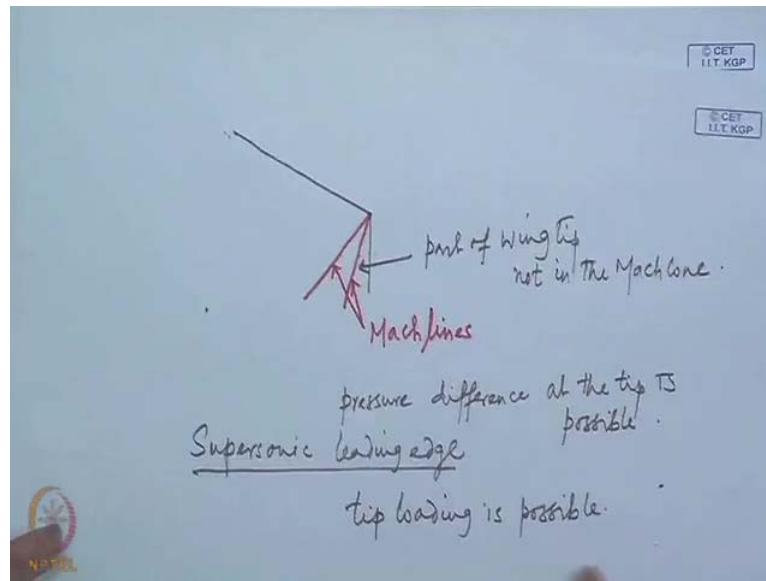 © CET
I.I.T. KGP
© CET
I.I.T. KGP
part of wing tip
not in The Mach Cone.
Mach lines
pressure difference at the tip is
possible.
Supersonic leading edge
tip loading is possible.
NPTEL